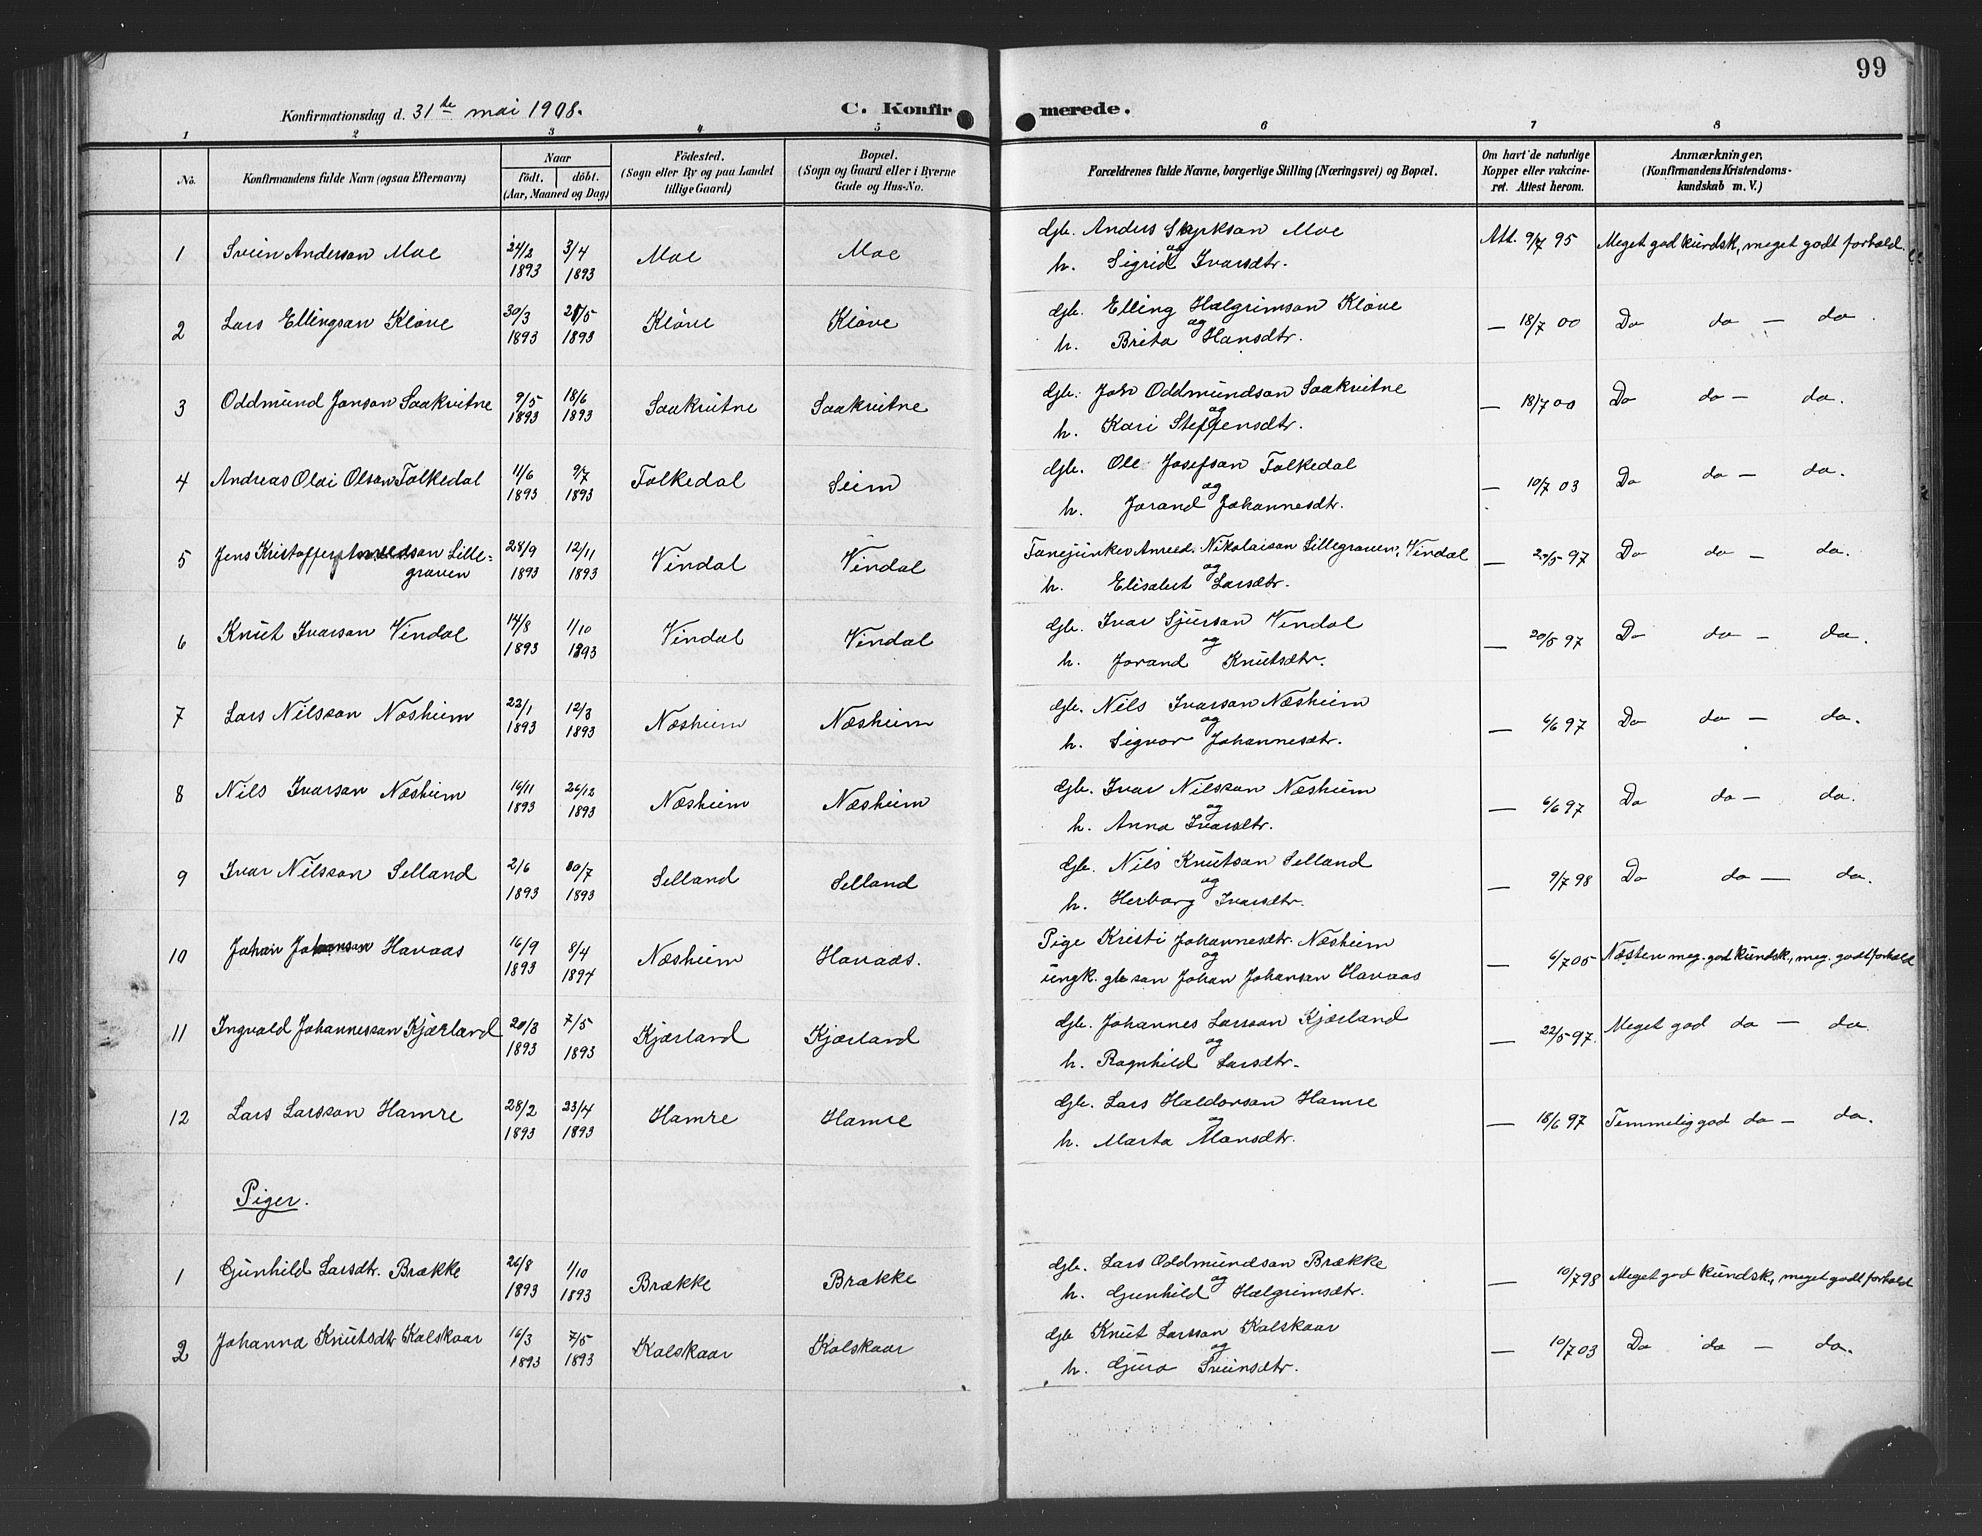 99
Konfirmationsdag d. 31te mai 1908.
C. Konfirmerede.
1 2 3 4 5 6 7 8
No.
Konfirmandens fulde Navn (ogsaa Efternavn)
Naar
født. døbt.
(Aar, Maaned og Dag)
Fødested.
(Sogn eller By og paa Landet
tillige Gaard)
Bopæl.
(Sogn og Gaard eller i Byerne
Gade og Hus-No.
Forældrenes fulde Navne, borgerlige Stilling (Næringsvei) og Bopæl.
Om havt de naturlige
Kopper eller vakcine-
ret. Attest herom.
Anmærkninger,
(Konfirmandens Kristendoms-
kundskab m. V.)
1 Svein Anderson Moe 24/2 1893 3/4 1893 Moe Moe
Gb. Anders Moe
og
h. Sigrid Ivarsdtr.
Att. 9/7 95 Meget god kundsk, meget godt forhold.
2 Lars Ellingson Kløve 30/3 1893 21/5 1893 Kløve Kløve
Gb. Elling Halgrimson Kløve
og
h. Brita Hansdtr.
— 18/7 00 Do do — do.
3 Oddmund Jonson Saakvitne 9/5 1893 18/6 1893 Saakvitne Saakvitne
Gb. Joh Oddmundson Saakvitne
og
h. Kari Steffensdtr.
— 18/7 00 Do do — do.
4 Andreas Olai Olson Folkedal 11/6 1893 9/7 1893 Folkedal Seim
Gb. Ole Josefson Folkedal
og
h. Jorand Johannesdtr.
— 10/7 03 Do do — do.
5 Jens Kristoffer Lille-
graven 28/9 1893 12/11 1893 Vindal Vindal
Fanejunker Anred. Nikolaison Lillegraven, Vindal
og
h. Elisabet Larsdtr.
— 97 Do do — do.
6 Knut Ivarson Vindal 14/8 1893 1/10 1893 Vindal Vindal
Gb. Ivar Sjurson Vindal
og
h. Jorand Knutsdtr.
— 20/5 97 Do do — do.
7 Lars Nilsson Næsheim 22/1 1893 12/3 1893 Næsheim Næsheim
Gb. Nils Ivarson Næsheim
og
h. Sigvor Johannesdtr.
— 6/6 97 Do do — do.
8 Nils Ivarson Næsheim 16/11 1893 26/12 1893 Næsheim Næsheim
Gb. Ivar Nilsson Næsheim
og
h. Anna Ivarsdtr.
— 6/6 97 Do do — do.
9 Ivar Nilsson Selland 2/6 1893 30/7 1893 Selland Selland
Gb. Nils Knutson Selland
og
h. Herborg Ivarsdtr.
— 9/7 98 Do do — do.
10 Johan Johanson Havaas 16/9 1893 8/4 1894 Næsheim Havaas.
Pige Kristi Johannesdtr. Næsheim
og
ungk. gbson Johan Johanson Havaas
— 6/7 05 Næsten meg. god kundsk, meg. godt forhold
11 Ingvald Johannesson Kjærland 20/3 1893 7/5 1893 Kjærland Kjærland
Gb. Johannes Larsson Kjærland
og
h. Ragnhild Larsdtr.
— 22/5 97. Meget god do — do.
12 Lars Larsson Hamre 28/2 1893 23/4 1893 Hamre Hamre
Gb. Lars Haldorson Hamre
og
h. Marta Monsdtr.
— 18/6 97 Temmelig god do — do.
Piger.
1 Gunhild Larsdtr. Brække 26/8 1893 1/10 1893 Brække Brække
Gb. Lars Oddmundson Brække
og
h. Gunhild Halgrimsdtr.
— 10/7 98 Meget god kundsk, meget godt forhold
2 Johanna Knutsdtr Kolskaar 16/3 1893 7/5 1893 Kolskaar Kolskaar
Gb Knut Larsson Kolskaar
og
h. Guro Sveinsdtr.
— 10/7 03 Do do — do.